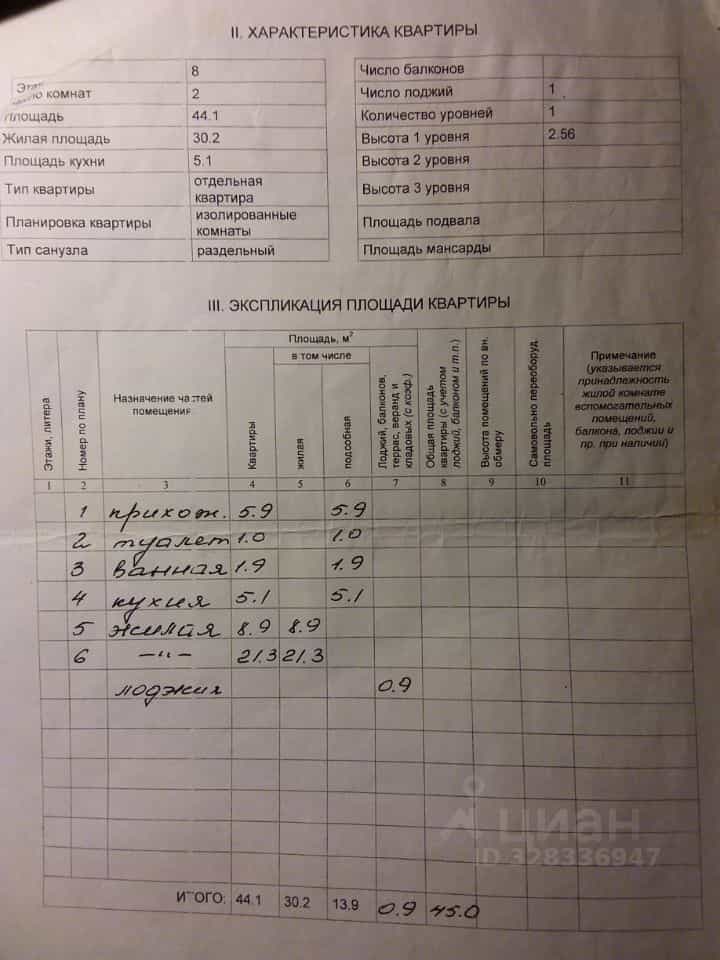 II. ХАРАКТЕРИСТИКА КВАРТИРЫ
Этаж 8
Число комнат 2
Площадь 44.1
Жилая площадь 30.2
Площадь кухни 5.1
Тип квартиры отдельная
квартира
Планировка квартиры изолированные
комнаты
Тип санузла раздельный
Число балконов
Число лоджий 1
Количество уровней 1
Высота 1 уровня 2.56
Высота 2 уровня
Высота 3 уровня
Площадь подвала
Площадь мансарды
III. ЭКСПЛИКАЦИЯ ПЛОЩАДИ КВАРТИРЫ
Этажи, литера
Номер по плану
Назначение частей
помещения
Площадь, м²
в том числе
Квартиры
жилая
подсобная
Лоджий, балконов,
террас, веранд и
кладовых (с коэф.)
Общая площадь
квартиры (с учетом
лоджий, балконом и т.п.)
Высота помещений по вн.
обмеру
Самовольно переоборуд.
площадь
Примечание
(указывается
принадлежность
жилой комнате
вспомогательных
помещений,
балкона, лоджии и
пр. при наличии)
1 2 3 4 5 6 7 8 9 10 11
1 прихож. 5.9 5.9
2 туалет 1.0 1.0
3 ванная 1.9 1.9
4 кухня 5.1 5.1
5 жилая 8.9 8.9
6 —"— 21.3 21.3
лоджия 0.9
ИТОГО: 44.1 30.2 13.9 0.9 45.0
циан
ID 328336947